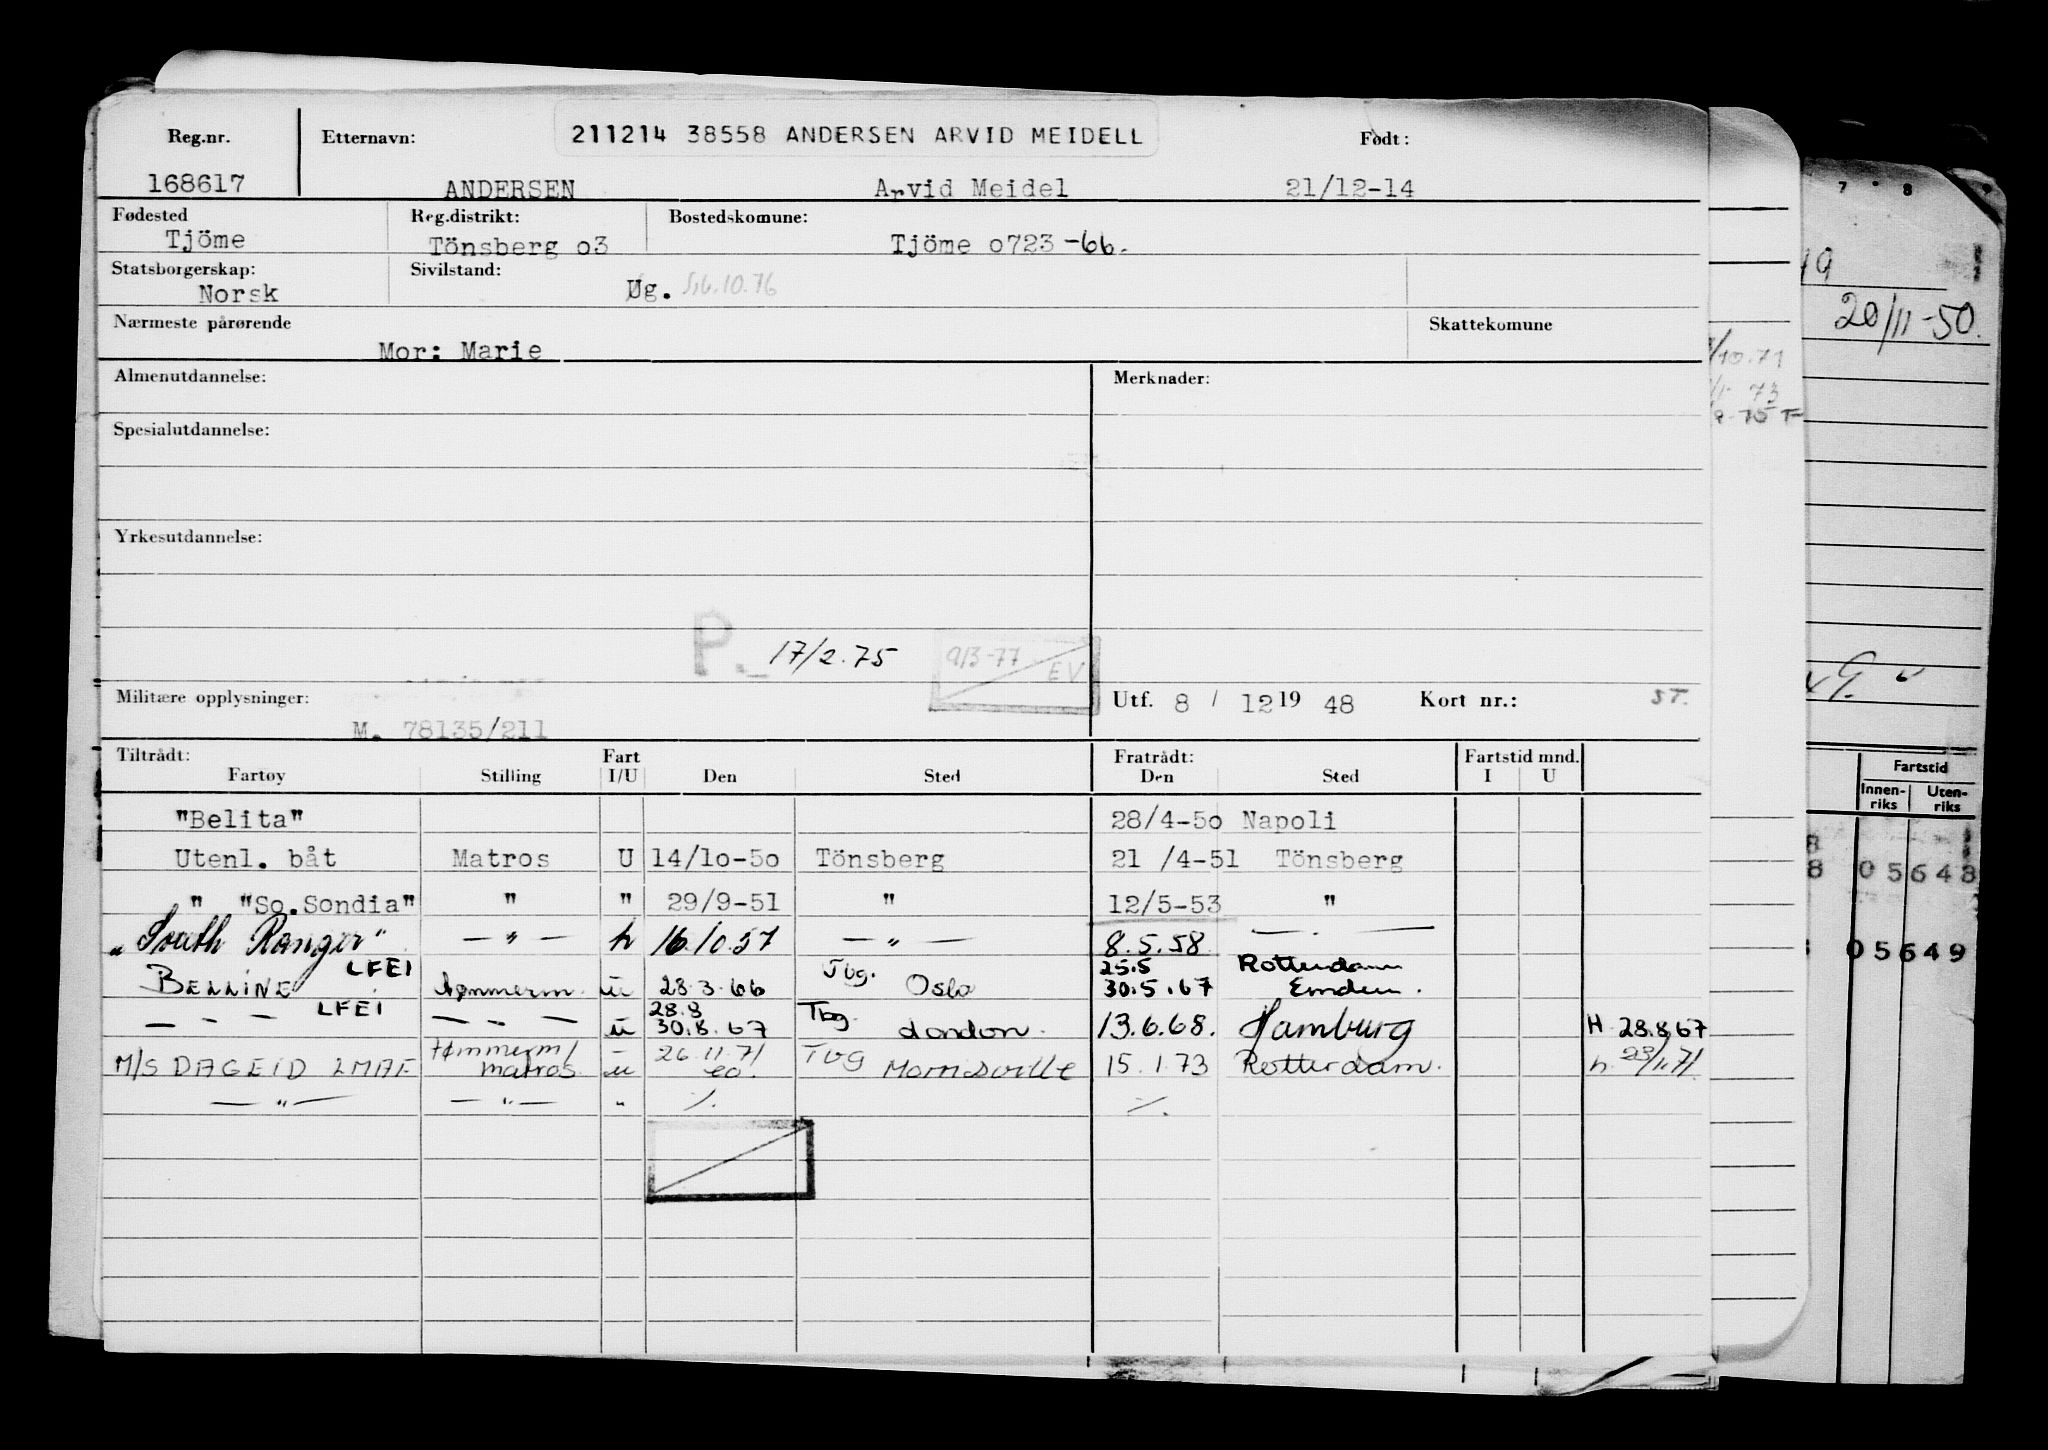 Reg.nr. Etternavn: 211214 38558 ANDERSEN ARVID MEIDELL Født:
168617 ANDERSEN Arvid Meidel 21/12-14
Fødested Reg.distrikt: Bostedskomune:
Tjöme Tönsberg o3 Tjöme o723 -66.
Statsborgerskap: Sivilstand:
Norsk Ug. 5/6.10.76
Nærmeste pårørende Skattekomune
Mor: Marie
Almenutdannelse: Merknader:
Spesialutdannelse:
Yrkesutdannelse:
P. 17/2.75 9/3-77 EV
Militære opplysninger: Utf. 8 / 12 19 48 Kort nr.: ST.
M. 78135/211
Tiltrådt: Fart Fratrådt: Fartstid mnd.
Fartøy Stilling I/U Den Sted Den Sted I U
"Belita" 28/4-5o Napoli
Utenl. båt Matros U 14/1o-5o Tönsberg 21 /4-51 Tönsberg
" "So.Sondia" " " 29/9-51 " 12/5-53 "
"South Ranger" — " — h 16.10.57 — " — 8.5.58 — . —
BELLINE LFEI u 28.3.66 Tbg. Oslo 25.5 30.5.67 Rotterdam Emden.
— " — LFEI — " — u 28.8 30.8.67 Tbg. London. 13.6.68. Hamburg H 28.8.67
M/S DAGEID LMAF Tømmerm/ matros u 26.11.71 eo. Tbg 15.1.73 Rotterdam. h. 23/11.71
— " — — " — " ./. ./.
7 8
20/11-50.
/10.71
73
75
Fartstid
Innen- Uten-
riks riks
8
8 05648
05649